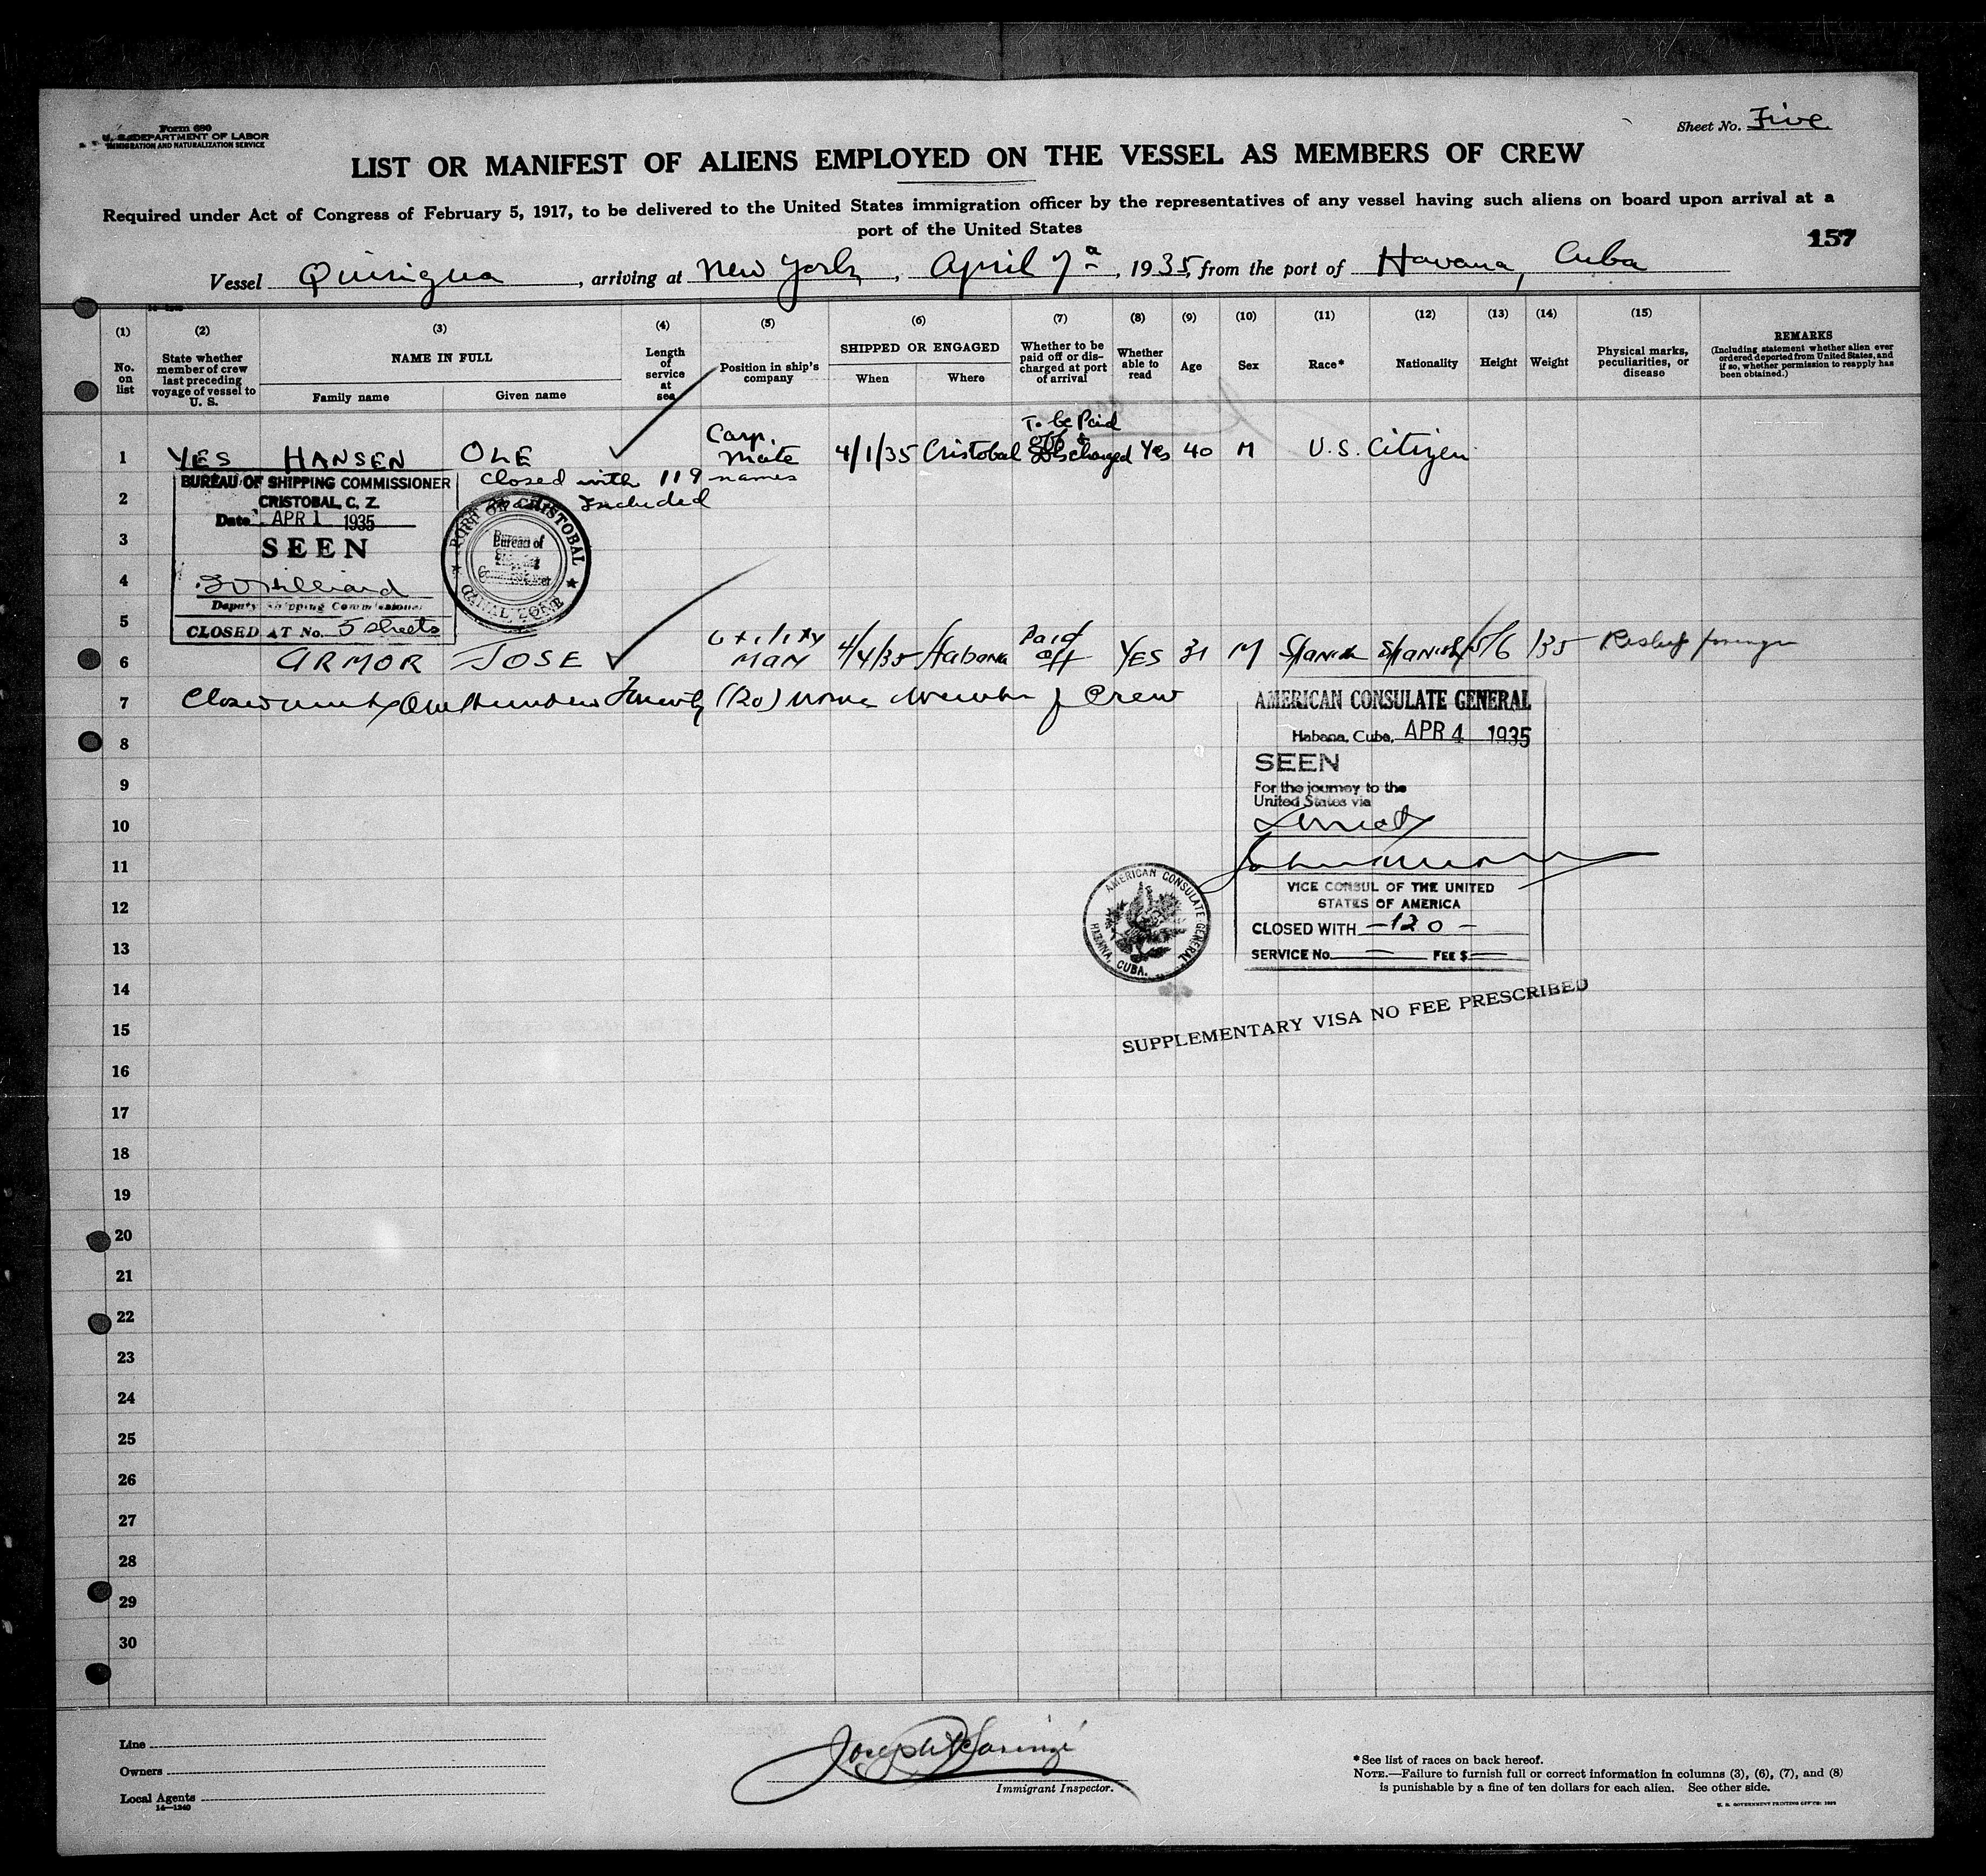 Form 680
U. S. DEPARTMENT OF LABOR
IMMIGRATION AND NATURALIZATION SERVICE
Sheet No. Five
LIST OR MANIFEST OF ALIENS EMPLOYED ON THE VESSEL AS MEMBERS OF CREW
Required under Act of Congress of February 5, 1917, to be delivered to the United States immigration officer by the representatives of any vessel having such aliens on board upon arrival at a
port of the United States
157
Vessel Quirigua, arriving at New York, April 7, 1935, from the port of Havana, Cuba
(1) No. on list
(2) State whether member of crew last preceding voyage of vessel to U. S.
(3) NAME IN FULL
Family name Given name
(4) Length of service at sea
(5) Position in ship's company
(6) SHIPPED OR ENGAGED
When Where
(7) Whether to be paid off or discharged at port of arrival
(8) Whether able to read
(9) Age
(10) Sex
(11) Race*
(12) Nationality
(13) Height
(14) Weight
(15) Physical marks, peculiarities, or disease
REMARKS
(Including statement whether alien ever ordered deported from United States, and if so, whether permission to reapply has been obtained.)
1 YES HANSEN OLE Carp. Mate 4/1/35 Cristobal To be Paid off & Discharged Yes 40 M U.S. Citizen
Closed with 119 names
Included
BUREAU OF SHIPPING COMMISSIONER
CRISTOBAL, C. Z.
Date APR 1 1935
SEEN
Deputy Shipping Commissioner
CLOSED AT No. 5 sheets
PORT OF CRISTOBAL
Bureau of
Shipping
Commissioner
CANAL ZONE
2
3
4
5
6 ARMOR JOSE Utility MAN 4/4/35 Habana Paid off YES 31 M Spanish Spanish 5/6 135
7 Closed with One Hundred Twenty (120) Members of Crew
AMERICAN CONSULATE GENERAL
Habana, Cuba, APR 4 1935
SEEN
For the journey to the
United States via
VICE CONSUL OF THE UNITED
STATES OF AMERICA
CLOSED WITH -120-
SERVICE No. FEE $
AMERICAN CONSULATE GENERAL
HABANA, CUBA.
SUPPLEMENTARY VISA NO FEE PRESCRIBED
8
9
10
11
12
13
14
15
16
17
18
19
20
21
22
23
24
25
26
27
28
29
30
Line
Owners
Local Agents
14—1240
Immigrant Inspector.
*See list of races on back hereof.
NOTE.—Failure to furnish full or correct information in columns (3), (6), (7), and (8)
is punishable by a fine of ten dollars for each alien. See other side.